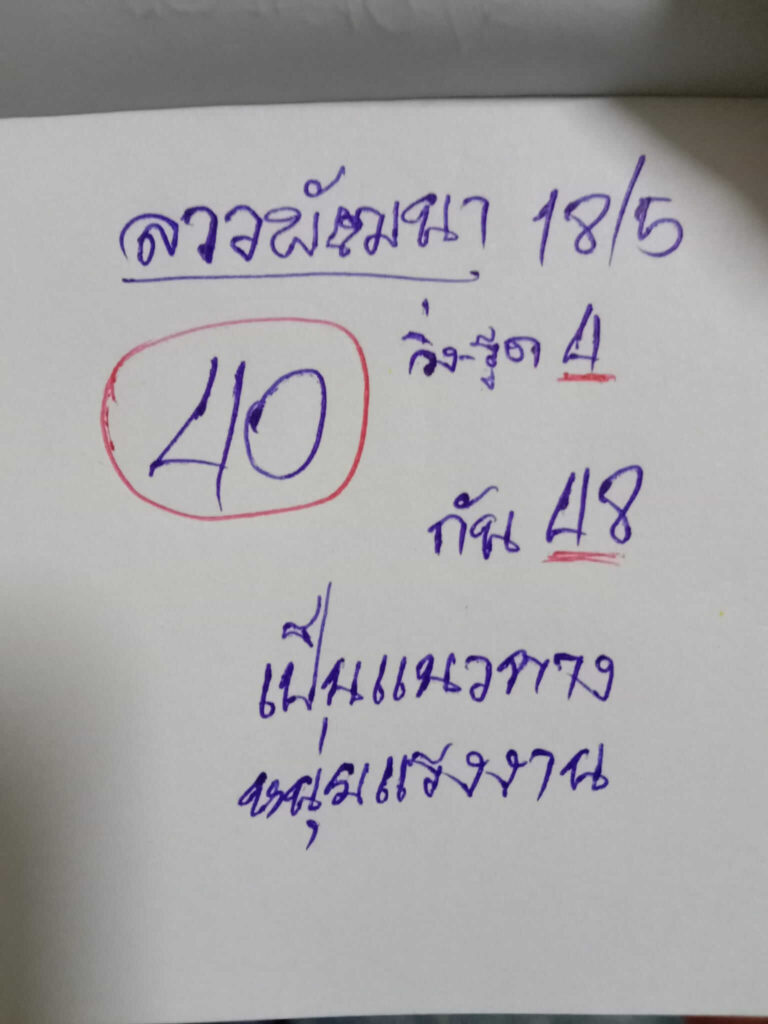 ลาวพัฒนา 18/5
40
วิ่ง-รูด 4
กัน 48
เป็นแนวทาง
หนุ่มแรงงาน